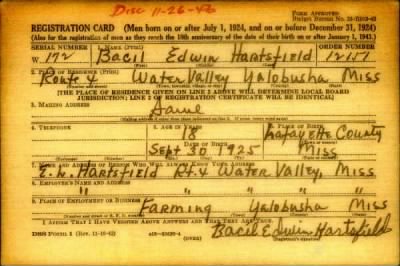 Disc 11-26-46
REGISTRATION CARD—(Men born on or after July 1, 1924, and on or before December 31, 1924)
(Also for the registration of men as they reach the 18th anniversary of the date of their birth on or after January 1, 1943.)
SERIAL NUMBER 1. NAME (Print) ORDER NUMBER
W 172 Bacil Edwin Hartsfield 12151
2. PLACE OF RESIDENCE (Print)
Route 4 Water Valley Yalobusha Miss
[THE PLACE OF RESIDENCE GIVEN ON LINE 2 ABOVE WILL DETERMINE LOCAL BOARD
JURISDICTION; LINE 2 OF REGISTRATION CERTIFICATE WILL BE IDENTICAL]
3. MAILING ADDRESS
Same
4. TELEPHONE 5. AGE IN YEARS 6. PLACE OF BIRTH
18 Lafayette County
DATE OF BIRTH
Sept 30 1925 Miss
7. NAME AND ADDRESS OF PERSON WHO WILL ALWAYS KNOW YOUR ADDRESS
Hartsfield Rt. 4 Water Valley, Miss
8. EMPLOYER'S NAME AND ADDRESS
" " " "
9. PLACE OF EMPLOYMENT OR BUSINESS
Farming Yalobusha Miss
I AFFIRM THAT I HAVE VERIFIED ABOVE ANSWERS AND THAT THEY ARE TRUE.
DSS Form 1
Bacil Edwin Hartsfield